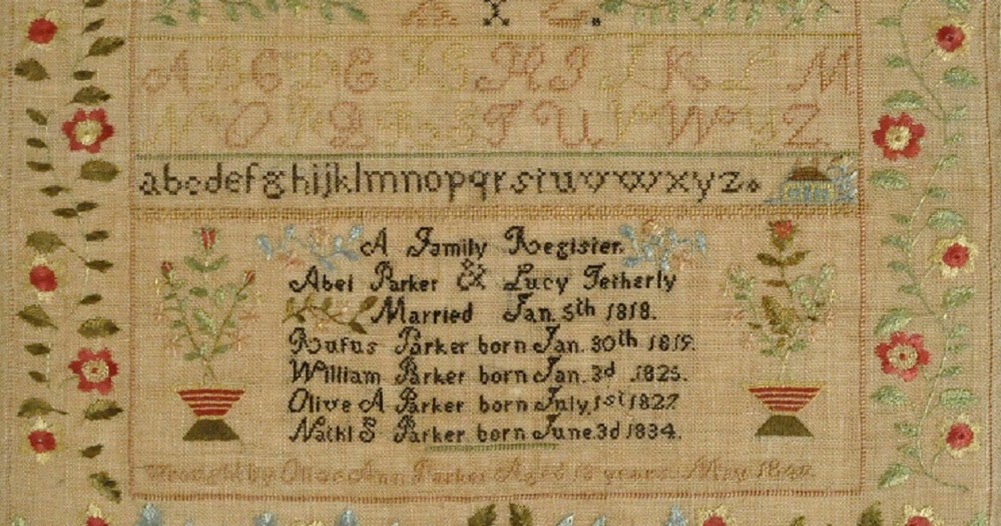 X Z.
A B C D E F G H I J K L M
N O P Q R S T U V W X Y Z
abcdefghijklmnopqrstuvwxyz.
A Family Register.
Abel Parker & Lucy Tetherly
Married Jan. 5th 1818.
Rufus Parker born Jan. 30th 1819.
William Parker born Jan. 3d 1825.
Olive A Parker born July, 1st 1827
Nathl S Parker born June. 3d 1834.
Wrought by Olive Ann Parker Aged 12 years May 1840